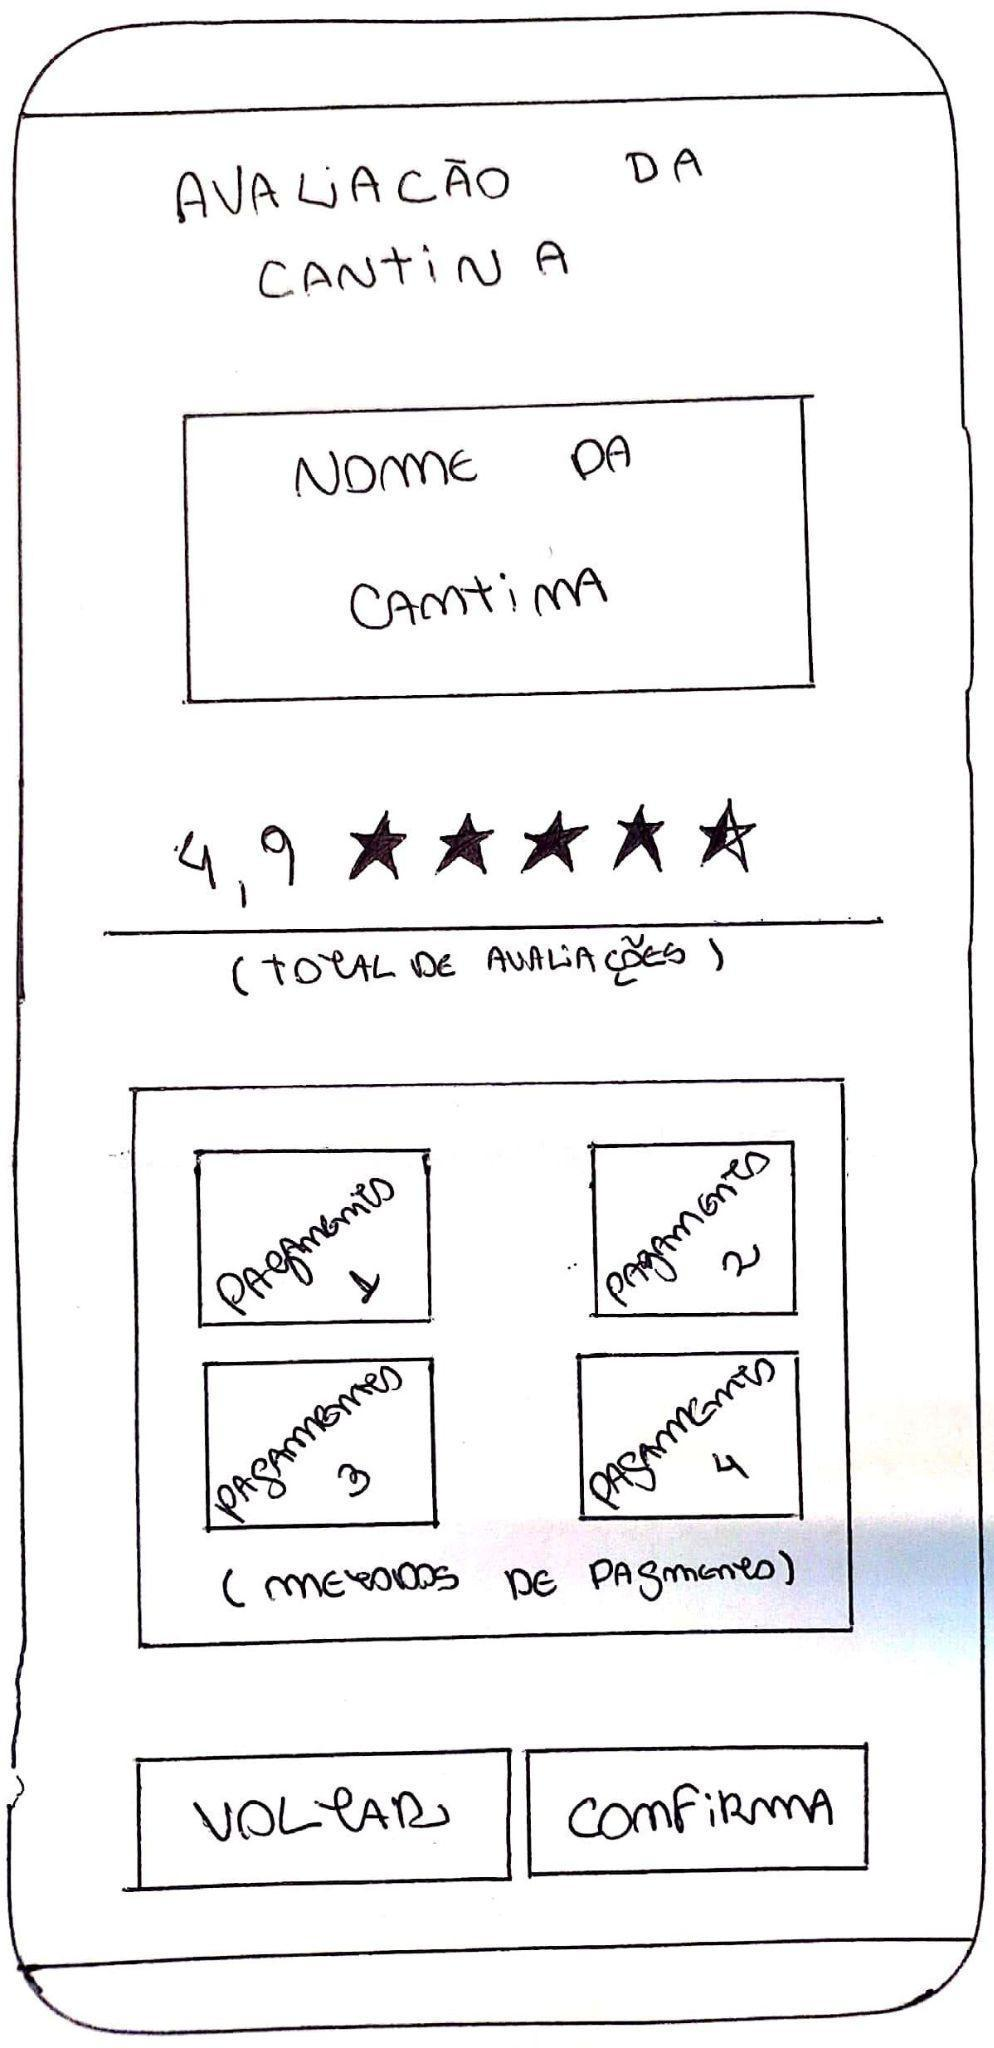 AVALiACÃO DA
CANTiNA
NOME DA
CANTiNA
4,9
(TOTAL DE AVALiAÇÕES)
PAGAMENTOS
1
PAGAMENTOS
2
PAGAMENTOS
3
PAGAMENTOS
4
(METODOS DE PAGMENTO)
VOLTAR
CONFiRMA